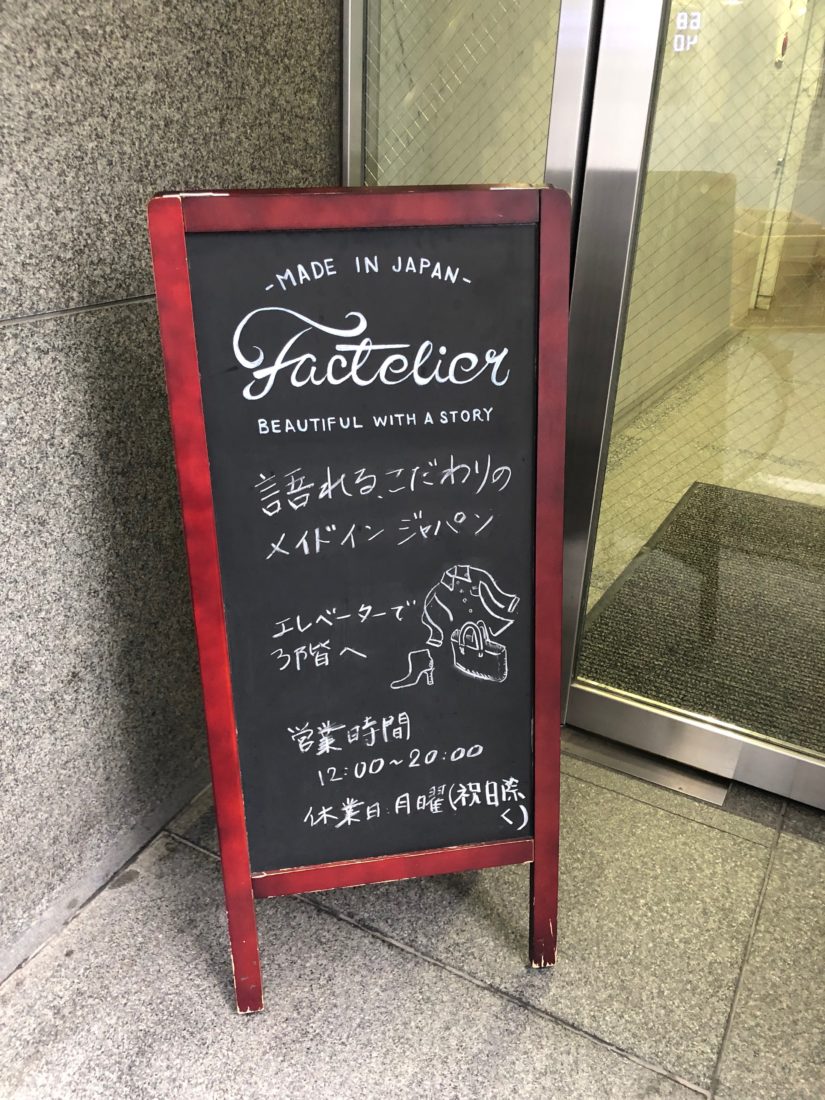 -MADE IN JAPAN-
Factelier
BEAUTIFUL WITH A STORY
語れる、こだわりの
メイドイン ジャパン
エレベーターで
3階へ
営業時間
12:00~20:00
休業日:月曜(祝日除
く)